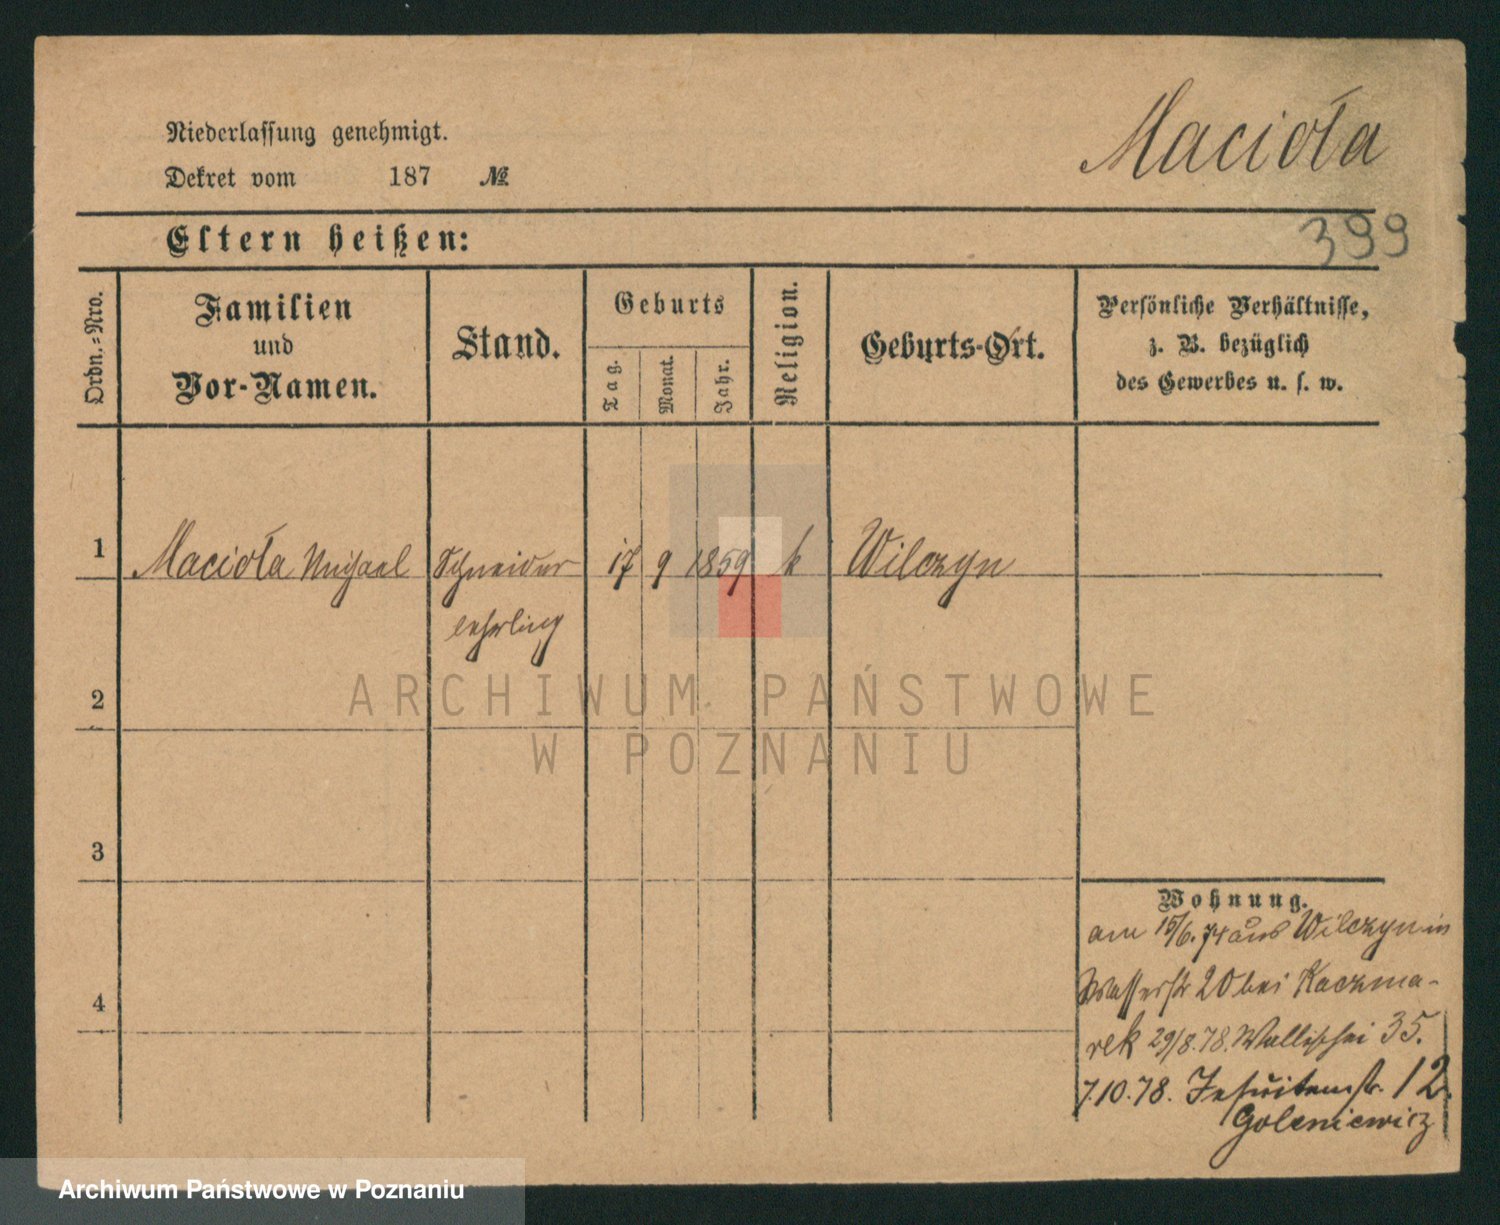 Niederlassung genehmigt.
Dekret vom 187 №
Macioła
399
Eltern heißen:
Ordn.-Nro.
Familien
und
Vor-Namen.
Stand.
Geburts
Tag.
Monat.
Jahr.
Religion.
Geburts-Ort.
Persönliche Verhältnisse,
z. B. bezüglich
des Gewerbes u. s. w.
1 Macioła Michael Schneider 17 9 1859 k Wilczyn
lehrling
2
3
4
Wohnung.
am 15/6. 74 aus Wilczyn in
Wasserstr 20 bei Kaczma-
rek 29/8. 78. Wallischei 35.
7.10.78. Jesuitenstr. 12
Goleniewicz
ARCHIWUM PAŃSTWOWE
W POZNANIU
Archiwum Państwowe w Poznaniu